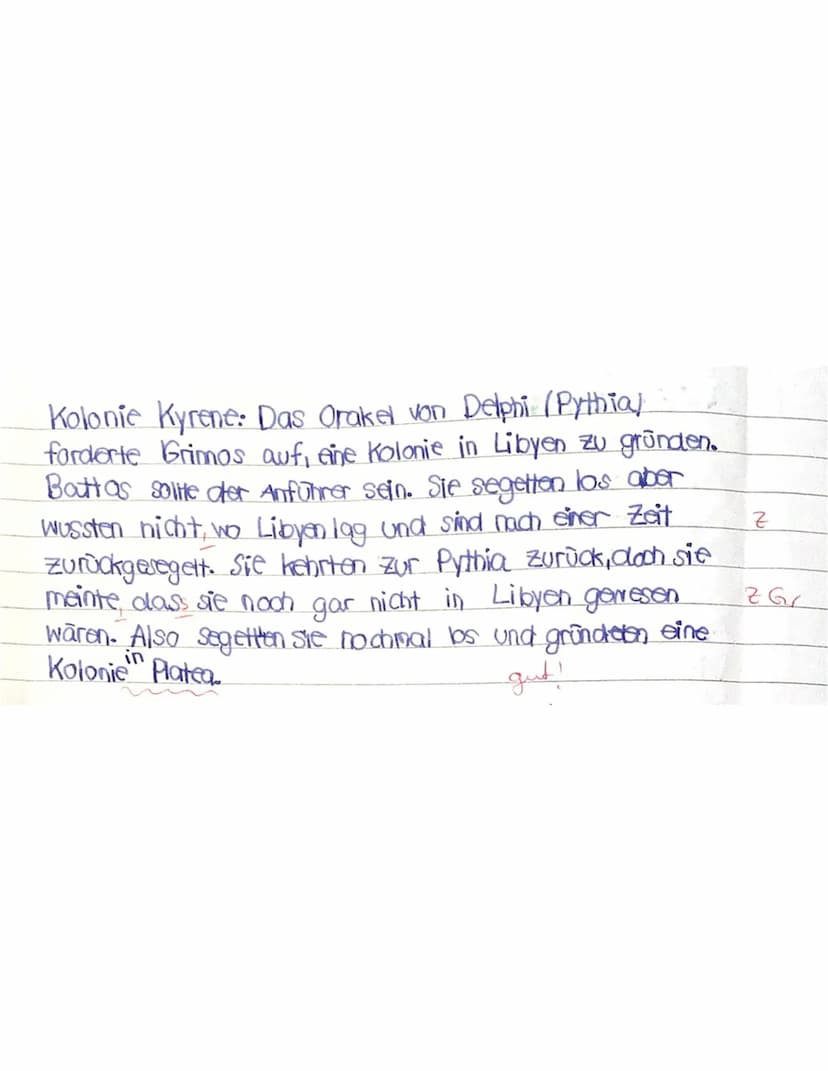 Kolonie Kyrene: Das Orakel von Delphi (Pythia)
forderte Grinnos auf, eine Kolonie in Libyen zu gründen.
Battos sollte der Anführer sein. Sie segelten los aber
wussten nicht, wo Libyen lag und sind nach einer Zeit Z
zurückgesegelt. Sie kehrten zur Pythia zurück, doch sie
meinte, dass sie noch gar nicht in Libyen gewesen Z Gr
wären. Also segelten sie nochmal los und gründeten eine
Kolonie in Platea.
gut!